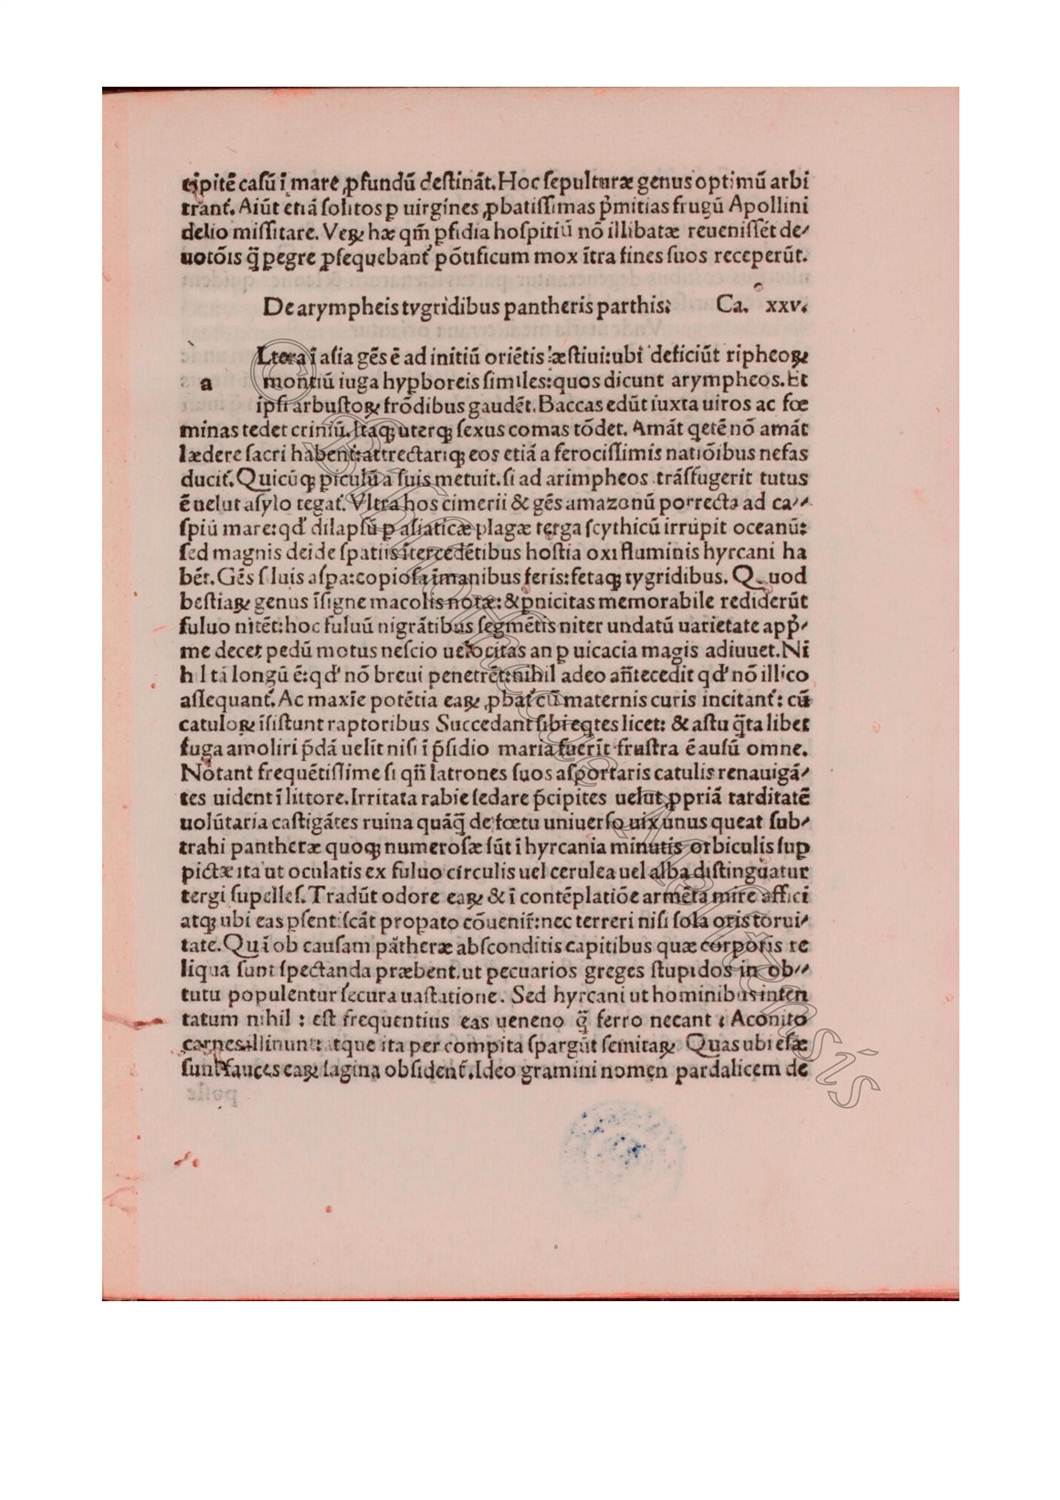 cipitē casū ī mare ꝓfundū destināt. Hoc sepulturæ genus optimū arbi
trant᷑. Aiūt etiā solitos ꝑ uirgines ꝓbatissimas p̄mitias frugū Apollini
delio missitare. Veꝝ hæ qm̄ ꝑfidia hospitiū nō illibatæ reuenissēt de⸗
uotōis q̄ ꝑegre ꝓsequebant᷑ pōtificum mox ītra fines suos receperūt.
De arympheis tygridibus pantheris parthis: Ca. xxv.
Ltera ī asia gēs ē ad initiū oriētis æstiui: ubi deficiūt ripheoꝝ
a montiū iuga hyperboreis similes: quos dicunt arympheos. Et
ipsi arbustoꝝ frōdibus gaudēt. Baccas edūt iuxta uiros ac fœ
minas tedet criniū. Itaqꝫ uterqꝫ sexus comas tōdet. Amāt qetē nō amāt
lædere sacri habent᷑: attrectariqꝫ eos etiā a ferocissimis natiōibus nefas
ducit᷑. Quicūqꝫ piculū a suis metuit. si ad arimpheos trāsfugerit tutus
ē uelut asylo tegat᷑. Vltra hos cimerii & gēs amazonū porrecta ad ca⸗
spiū mare: qd' dilapsū ꝑ asiaticæ plagæ terga scythicū irrupit oceanū:
sed magnis deide spatiis ītercedētibus hostia oxi fluminis hyrcani ha
bēt. Gēs siluis aspa: copiosa īmanibus feris: fetaqꝫ tygridibus. Quod
bestiaꝝ genus īsigne macolis notæ: & ꝑnicitas memorabile rediderūt
fuluo nitēt: hoc fuluū nigrātibus segmētis niter undatū uarietate app̄⸗
me decet pedū motus nescio uelocitas an ꝑuicacia magis adiuuet. Ni
hil tā longū ē: qd' nō breui penetrēt: nihil adeo an̄tecedit qd' nō illico
assequant᷑. Ac maxīe potētia eaꝝ ꝓbat᷑ cū maternis curis incitant᷑: cū
catuloꝝ īsistunt raptoribus Succedant sibi eqtes licet: & astu q̄ta libet
fuga amoliri p̄dā uelit nisi ī p̄sidio maria fuerīt frustra ē ausū omne.
Nōtant frequētissime si qn̄ latrones suos asportaris catulis renauigā⸗
tes uident ī littore. Irritata rabie sedare p̄cipites uelut ꝓpriā tarditatē
uolūtaria castigātes ruina quāq̄ de fœtu uniuerso uix unus queat sub⸗
trahi pantheræ quoqꝫ numerosæ sūt ī hyrcania minutis orbiculis sup
pictæ ita ut oculatis ex fuluo circulis uel cerulea uel alba distinguatur
tergi supelles. Tradūt odore eaꝝ & ī contēplatiōe armēta mire affici
atqꝫ ubi eas psentiscāt propato cōuenir̄: nec terreri nisi sola oris torui⸗
tate. Qui ob causam pātheræ absconditis capitibus quæ corporis re
liqua sunt spectanda præbent. ut pecuarios greges stupidos in ob⸗
tutu populentur secura uastatione. Sed hyrcani ut hominibus inten
tatum nihil: est frequentius eas ueneno q̄ ferro necant: Aconito
carnes illinunt: atque ita per compita spargūt semitaꝝ Quas ubi esæ
sunt fauces eaꝝ sagina obsident᷑. Ideo gramini nomen pardalicem de